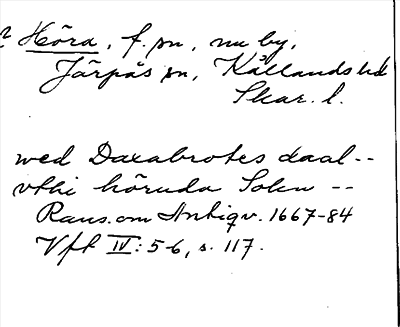 ? Höra, f. sn, nu by,
Järpås sn, Kållands hd
Skar. l.
wed Daxabrotes daal--
vthi höruda Sokn --
Rans. om Antiqv. 1667-84
Vfl IV:5-6, s. 117.